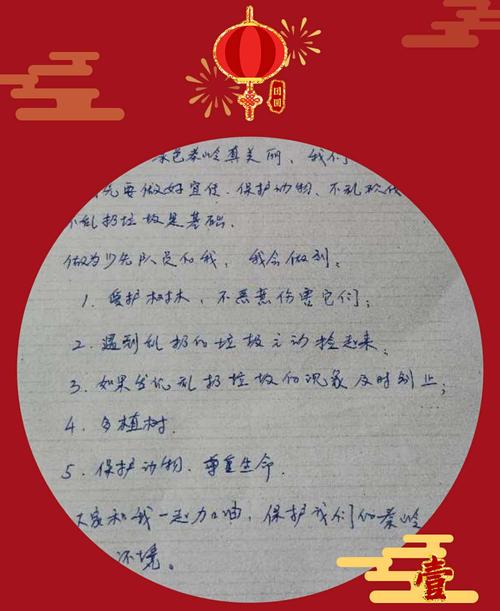 团圆
绿色秦岭真美丽、我们
先要做好宣传、保护动物、不乱砍伐
不乱扔垃圾是基础.
做为少先队员的我, 我会做到:
1. 爱护树木, 不恶意伤害它们;
2. 遇到乱扔的垃圾主动捡起来;
3. 如果发现乱扔垃圾的现象及时制止;
4. 多植树.
5. 保护动物、尊重生命.
大家和我一起加油, 保护我们的秦岭
环境。
壹